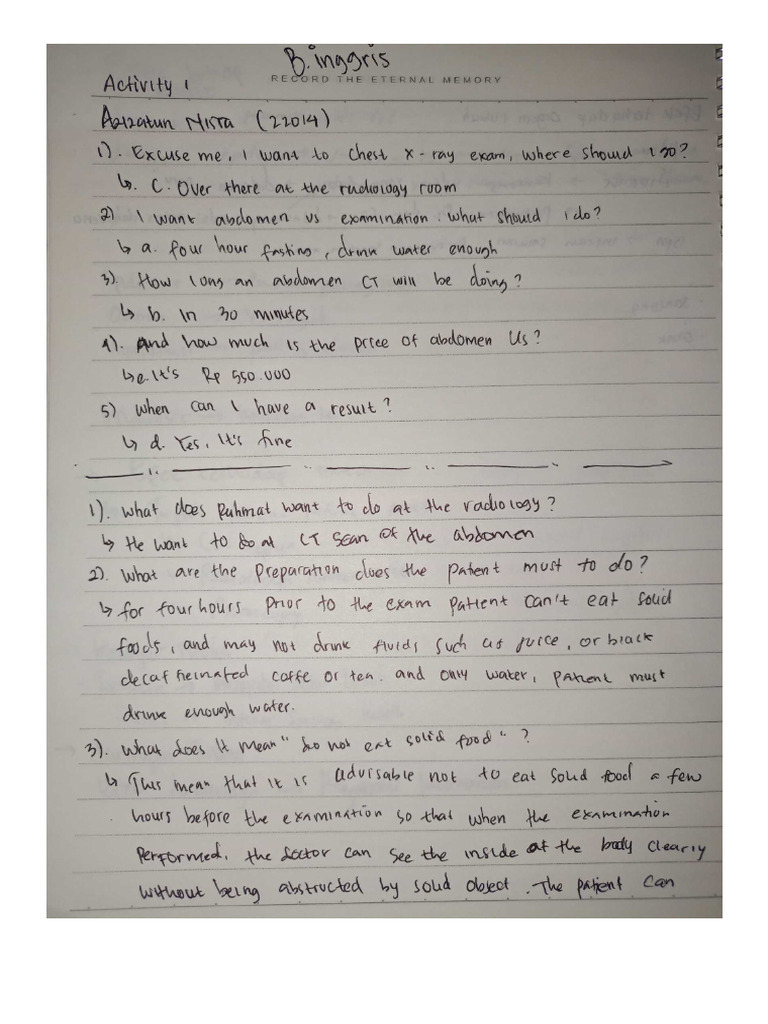 B. inggris
RECORD THE ETERNAL MEMORY
Activity 1
Azizatun Nisra (22014)
1). Excuse me, I want to chest x-ray exam, where should I go?
↳ c. Over there at the radiology room
2) I want abdomen us examination. what should I do?
↳ a. four hour fasting, drink water enough
3). How long an abdomen CT will be doing?
↳ b. In 30 minutes
4). And how much is the price of abdomen Us?
↳ e. It's Rp 550.000
5) When can I have a result?
↳ d. Yes, It's fine
1). What does Rahmat want to do at the radiology?
↳ He want to do at CT Scan of the abdomen
2). What are the preparation does the patient must to do?
↳ for four hours prior to the exam patient can't eat solid
foods, and may not drink fluids such as juice, or black
decaffeinated coffe or tea. and only water, patient must
drink enough water.
3). What does It mean "do not eat solid food"?
↳ This mean that it is advisable not to eat solid food a few
hours before the examination so that when the examination
performed, the doctor can see the inside of the body clearly
without being abstructed by solid object. The patient can